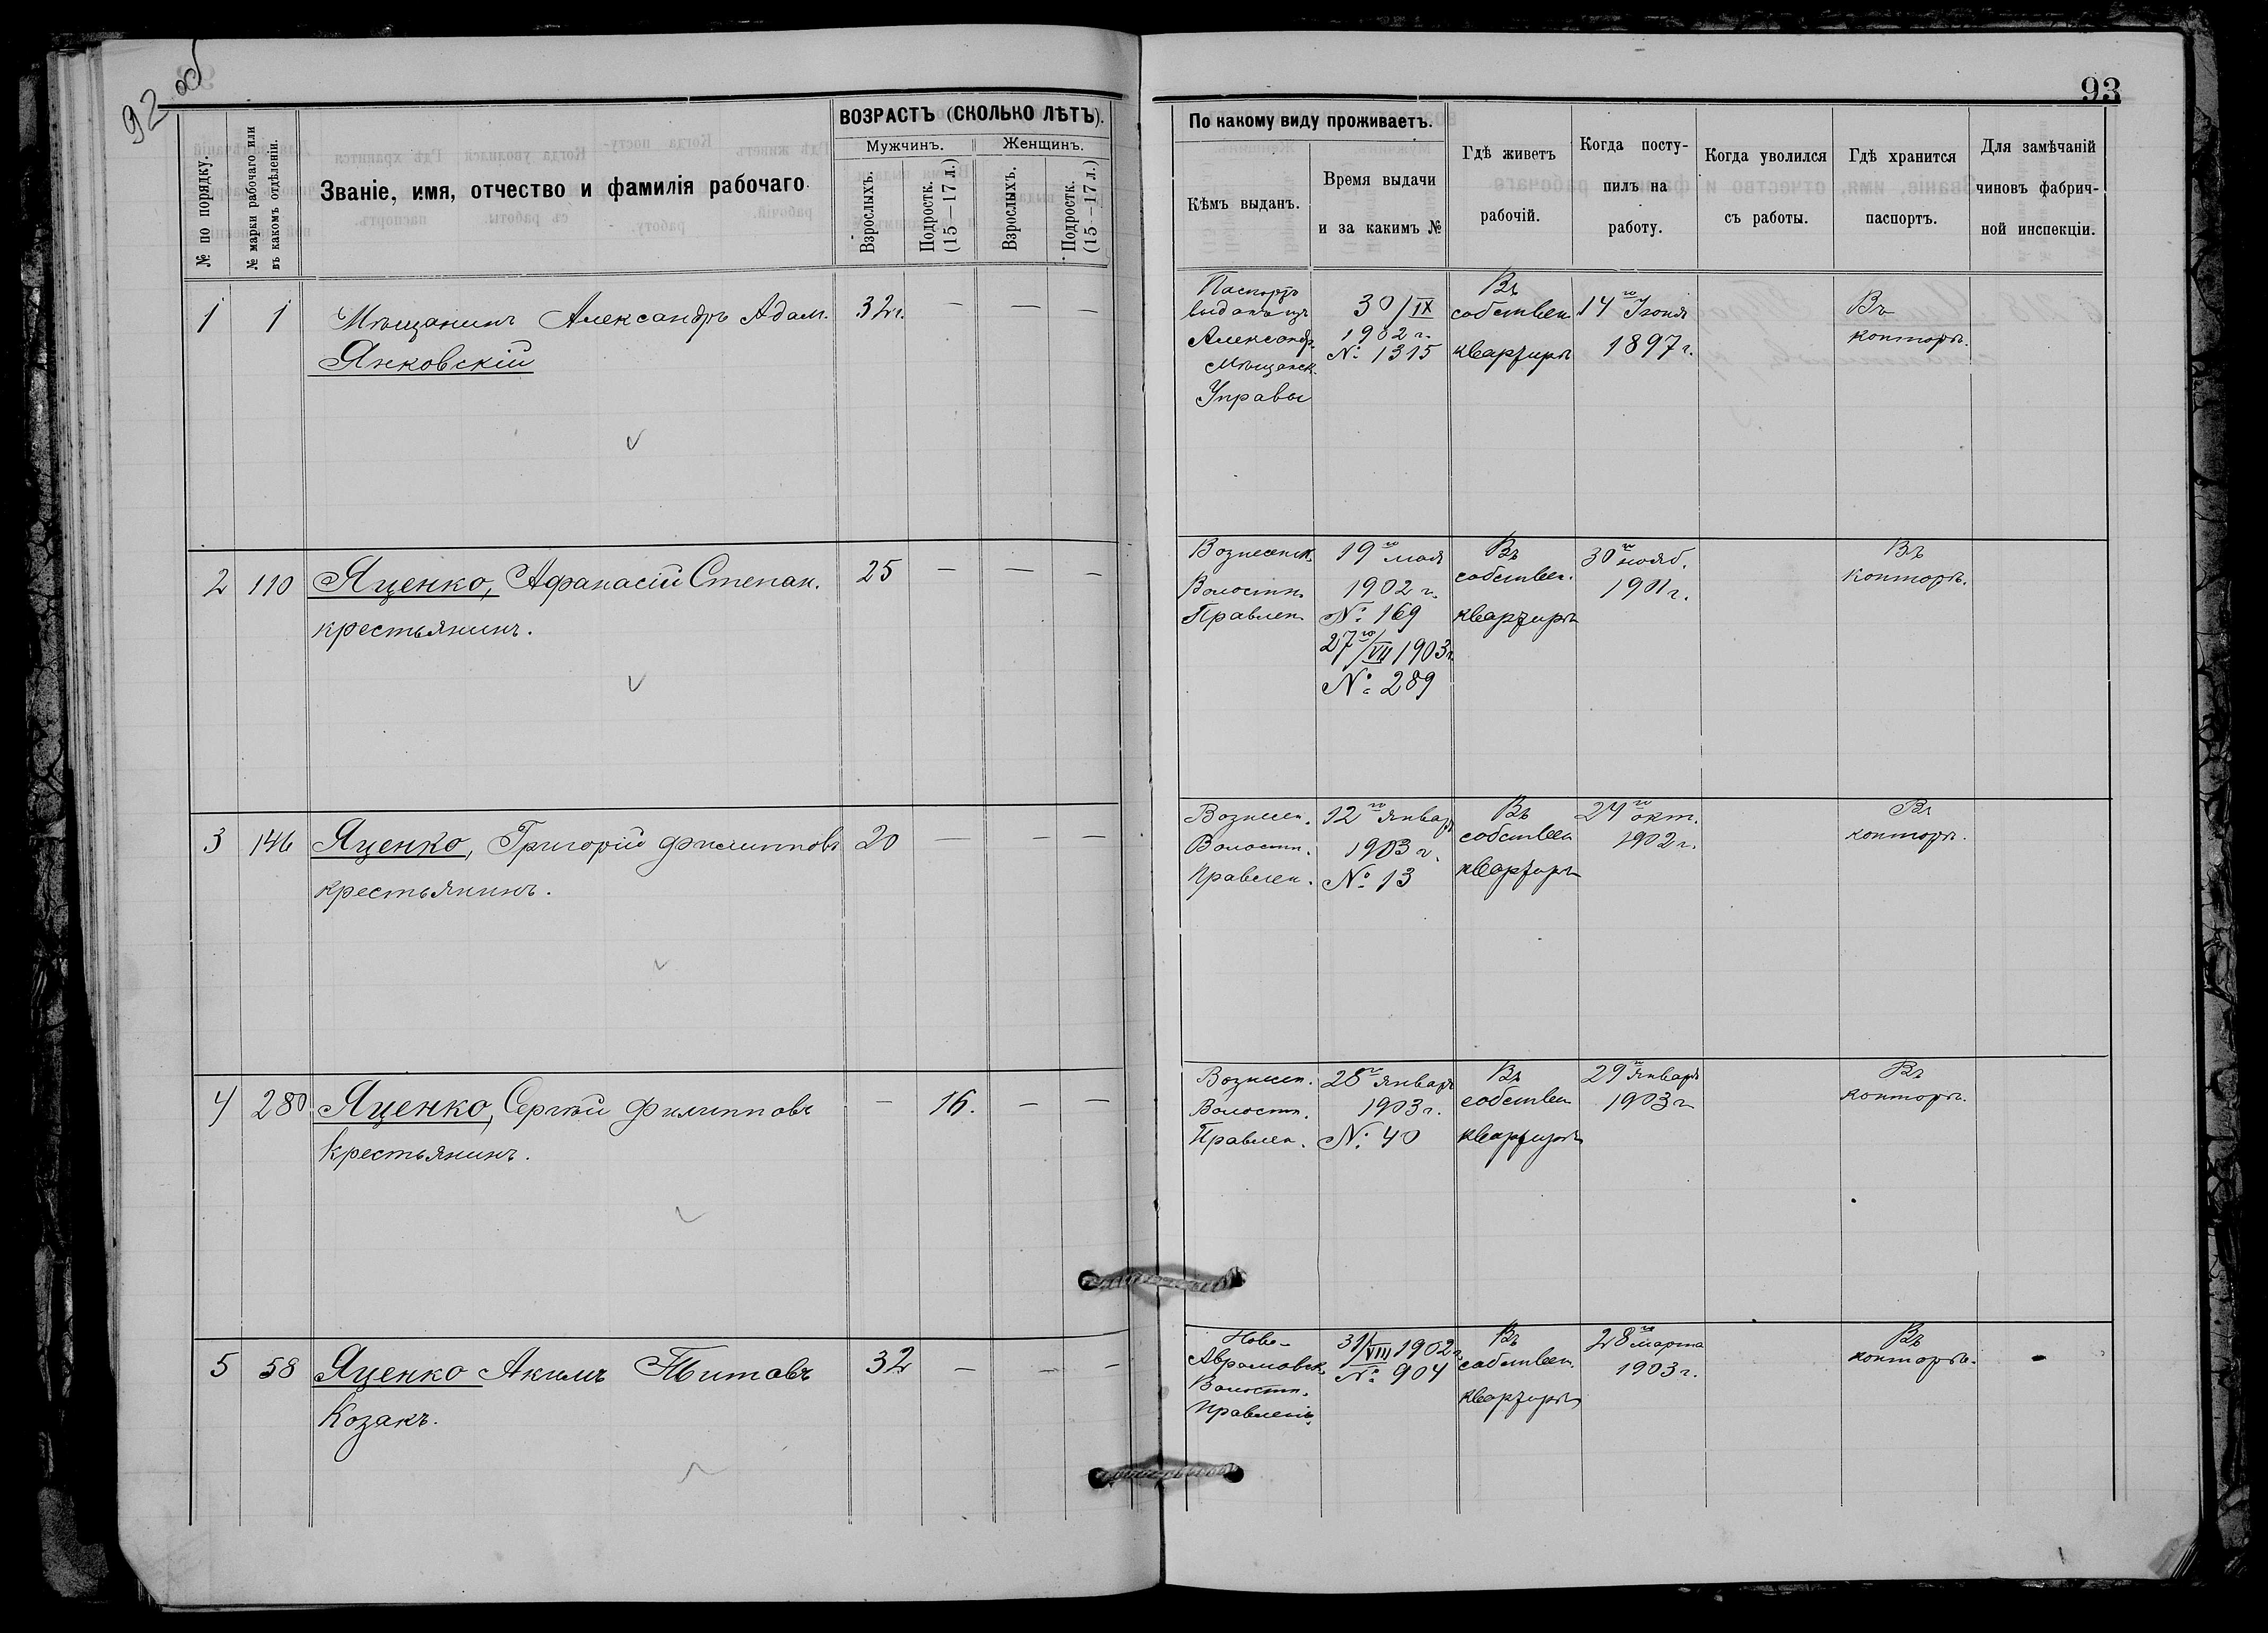 92 об
93
№ по порядку.
№ марки рабочаго или
въ какомъ отдѣленіи.
Званіе, имя, отчество и фамилія рабочаго.
ВОЗРАСТЪ (СКОЛЬКО ЛѢТЪ).
Мужчинъ.
Женщинъ.
Взрослыхъ.
Подростк.
(15—17 л.)
Взрослыхъ.
Подростк.
(15—17 л.)
По какому виду проживаетъ.
Кѣмъ выданъ.
Время выдачи
и за какимъ №
Гдѣ живетъ
рабочій.
Когда посту-
пилъ на
работу.
Когда уволился
съ работы.
Гдѣ хранится
паспортъ.
Для замѣчаній
чиновъ фабрич-
ной инспекціи.
1
1
Мѣщанинъ Александръ Адам.
Янковскій
32 г.
— — —
Паспортъ
выданъ изъ
Александр.
Мѣщанск.
Управы
30/IX
1902 г.
№ 1315
Въ
собствен.
квартирѣ
14го Іюня
1897 г.
Въ
конторѣ.
2
110
Яценко, Афанасій Степан.
крестьянинъ.
25
— — —
Вознесенск.
Волостн.
Правлен.
19го мая
1902 г.
№ 169
27го/VII 1903 г.
№ 289
Въ
собствен.
квартирѣ
30го нояб.
1901 г.
Въ
конторѣ.
3
146
Яценко, Григорій Филипповъ
крестьянинъ.
20
— — —
Вознесен.
Волостн.
Правлен.
12го январ.
1903 г.
№ 13
Въ
собствен
квартирѣ
24го окт.
1902 г.
Въ
конторѣ.
4
280
Яценко, Сергѣй Филипповъ
крестьянинъ.
—
16.
— —
Вознесен.
Волостн.
Правлен.
28го январ
1903 г.
№ 40
Въ
собствен
квартирѣ
29го январ
1903 г
Въ
конторѣ.
5
58
Яценко Акимъ Титовъ
Козакъ.
32
— — —
Ново-
Аврамовск.
Волостн.
Правленіе.
31/VIII 1902 г.
№ 904
Въ
собствен.
квартирѣ
28го марта
1903 г.
Въ
конторѣ.